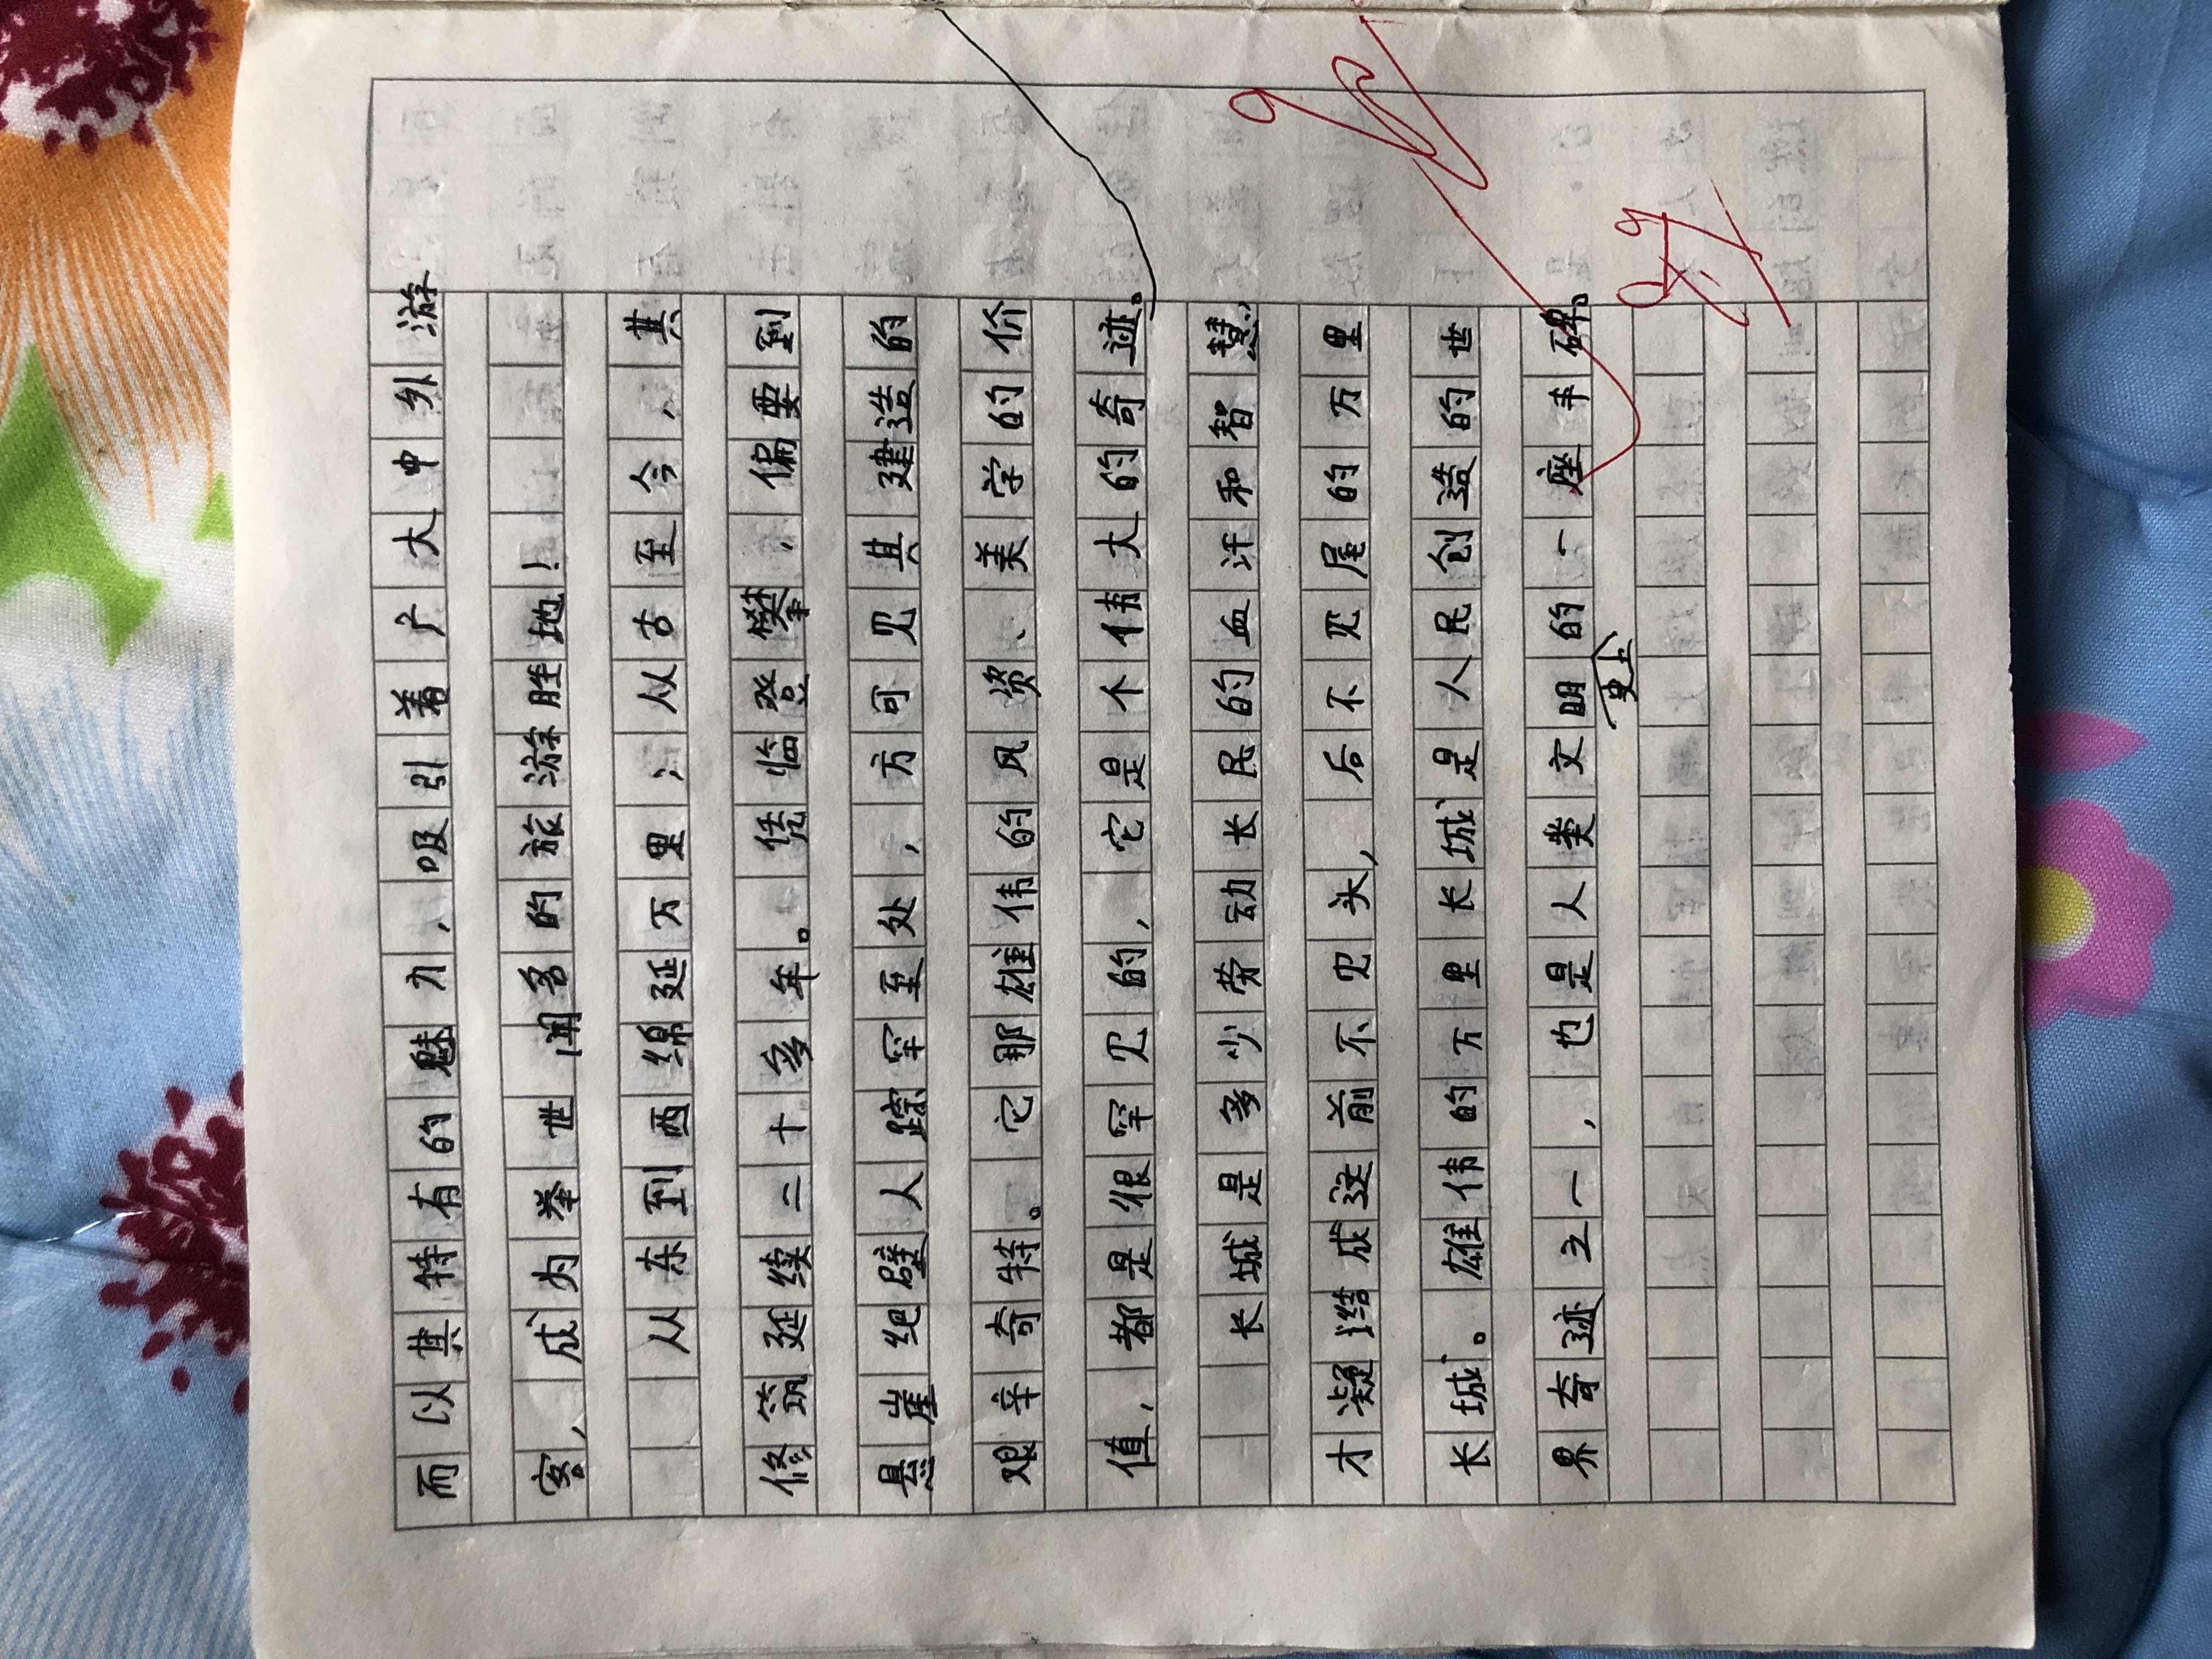 而以其特有的魅力，吸引着广大中外游
客，成为举世闻名的旅游胜地！
从东到西绵延万里；从古至今，其
修筑延续二十多年。凭临登攀，偏要到
悬崖绝壁人踪罕至处，方可见其建造的
艰辛奇特。它那雄伟的风姿、美学的价
值，都是很罕见的，它是个伟大的奇迹。
长城是多少劳动长民的血汗和智慧，
才凝结成这前不见头，后不见尾的万里
长城。雄伟的万里长城是人民创造的世
界奇迹之一，也是人类文明史上的一座丰碑。